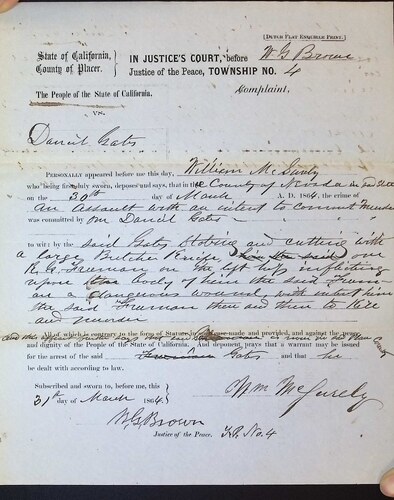 [DUTCH FLAT ENQUIRER PRINT.]
State of California, County of Placer.
IN JUSTICE'S COURT, before W G Brown
Justice of the Peace, TOWNSHIP NO. 4
Complaint,
The People of the State of California.
vs.
Daniel Gates
PERSONALLY appeared before me this day, William McSurely
who being first duly sworn, deposes and says, that in the County of Nevada
on the 30th day of March A. D. 1864, the crime of
an assault with an intent to commit Murder
was committed by one Daniel Gates
to wit: by the said Gates Stabing and cutting with
a large Butcher Knife one
Freeman on the left hip inflicting
upon body of him the said Freeman
a dangerous wound, with intent him
the said Freeman then and there to Kill
and murder
All of which is contrary to the form of Statute in such case made and provided, and against the peace
and dignity of the People of the State of California. And deponent prays that a warrant may be issued
for the arrest of the said Freeman Gates and that he
be dealt with according to law.
Subscribed and sworn to, before me, this
31st day of March 1864
Wm McSurely
W G Brown
Justice of the Peace. T.P. No. 4